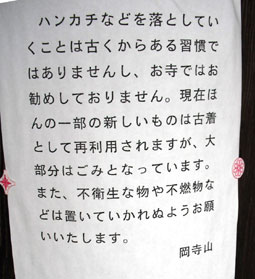 ハンカチなどを落としてい
くことは古くからある習慣で
はありませんし、お寺ではお
勧めしておりません。現在ほ
んの一部の新しいものは古着
として再利用されますが、大
部分はごみとなっています。
また、不衛生な物や不燃物な
どは置いていかれぬようお願
いいたします。
岡寺山